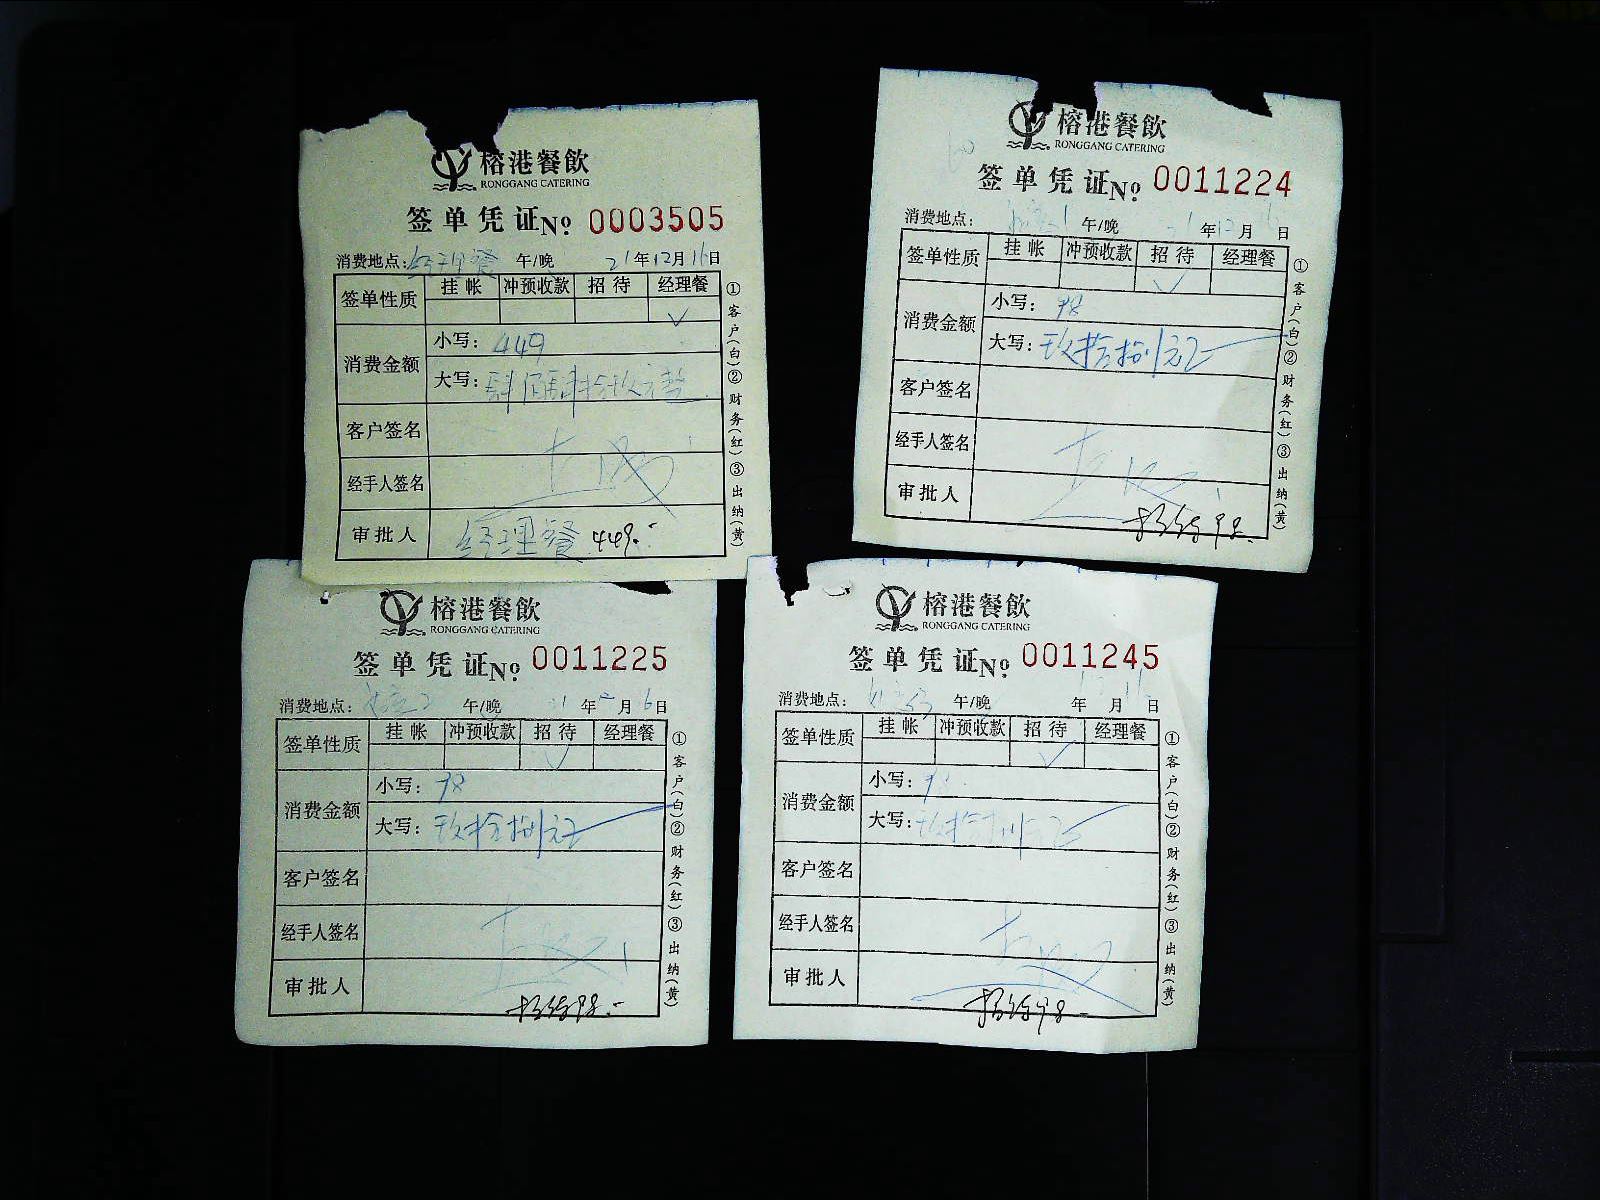 榕港餐飲
RONGGANG CATERING
签单凭证№ 0003505
消费地点: 经理餐 午/晚 21年12月16日
签单性质 挂帐 冲预收款 招待 经理餐
✓
消费金额 小写: 449
大写: 肆佰肆拾玖元整
客户签名
经手人签名
审批人 经理餐 449.-
①客户(白)②财务(红)③出纳(黄)
榕港餐飲
RONGGANG CATERING
签单凭证№ 0011224
消费地点: 午/晚 21年12月 日
签单性质 挂帐 冲预收款 招待 经理餐
✓
消费金额 小写: 98
大写: 玖拾捌元正
客户签名
经手人签名
审批人 招待98.
①客户(白)②财务(红)③出纳(黄)
榕港餐飲
RONGGANG CATERING
签单凭证№ 0011225
消费地点: 午/晚 年 月 日
签单性质 挂帐 冲预收款 招待 经理餐
✓
消费金额 小写: 98
大写: 玖拾捌元正
客户签名
经手人签名
审批人 招待98.-
①客户(白)②财务(红)③出纳(黄)
榕港餐飲
RONGGANG CATERING
签单凭证№ 0011245
消费地点: 午/晚 年 月 日
签单性质 挂帐 冲预收款 招待 经理餐
✓
消费金额 小写: 98
大写: 玖拾捌元正
客户签名
经手人签名
审批人 招待98-
①客户(白)②财务(红)③出纳(黄)